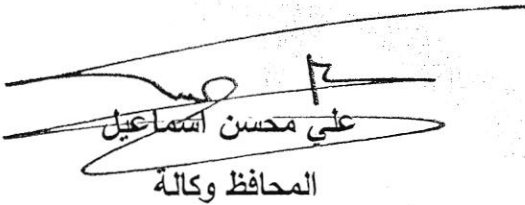 علي محسن اسماعيل
المحافظ وكالة